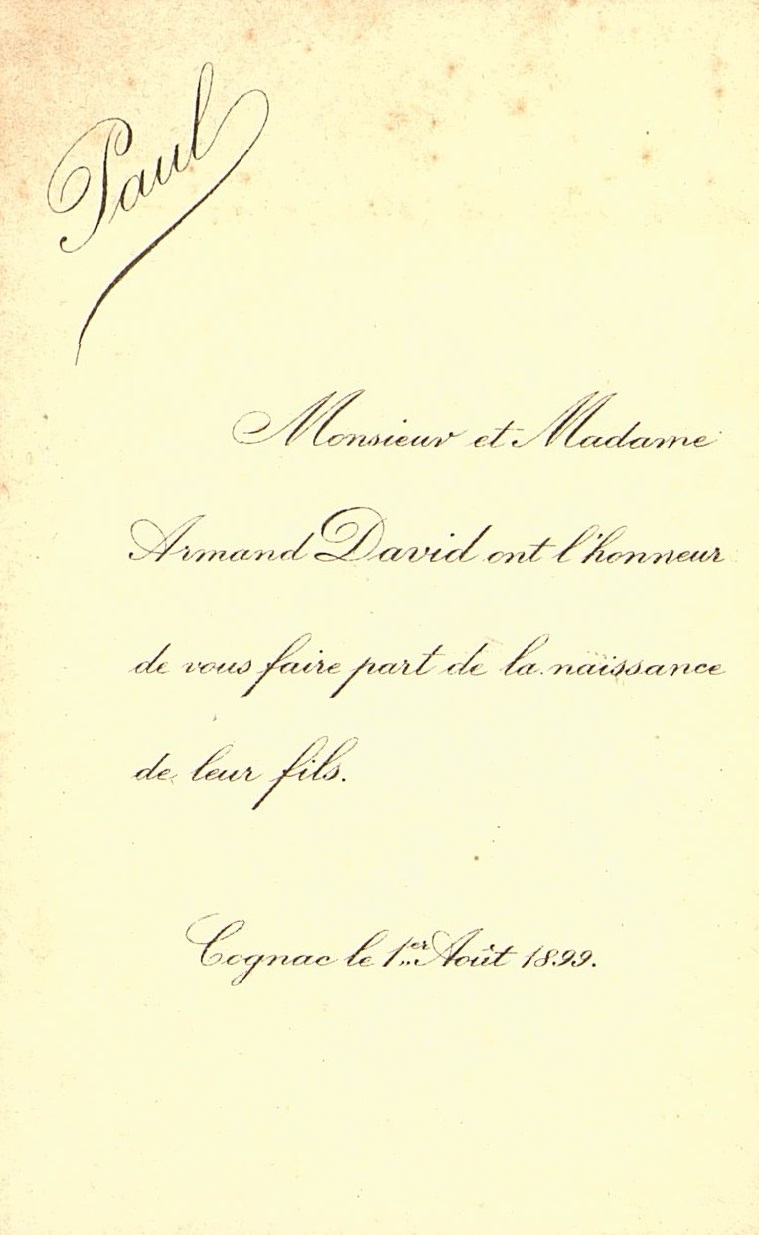 Paul
Monsieur et Madame
Armand David ont l'honneur
de vous faire part de la naissance
de leur fils.
Cognac le 1er Août 1899.